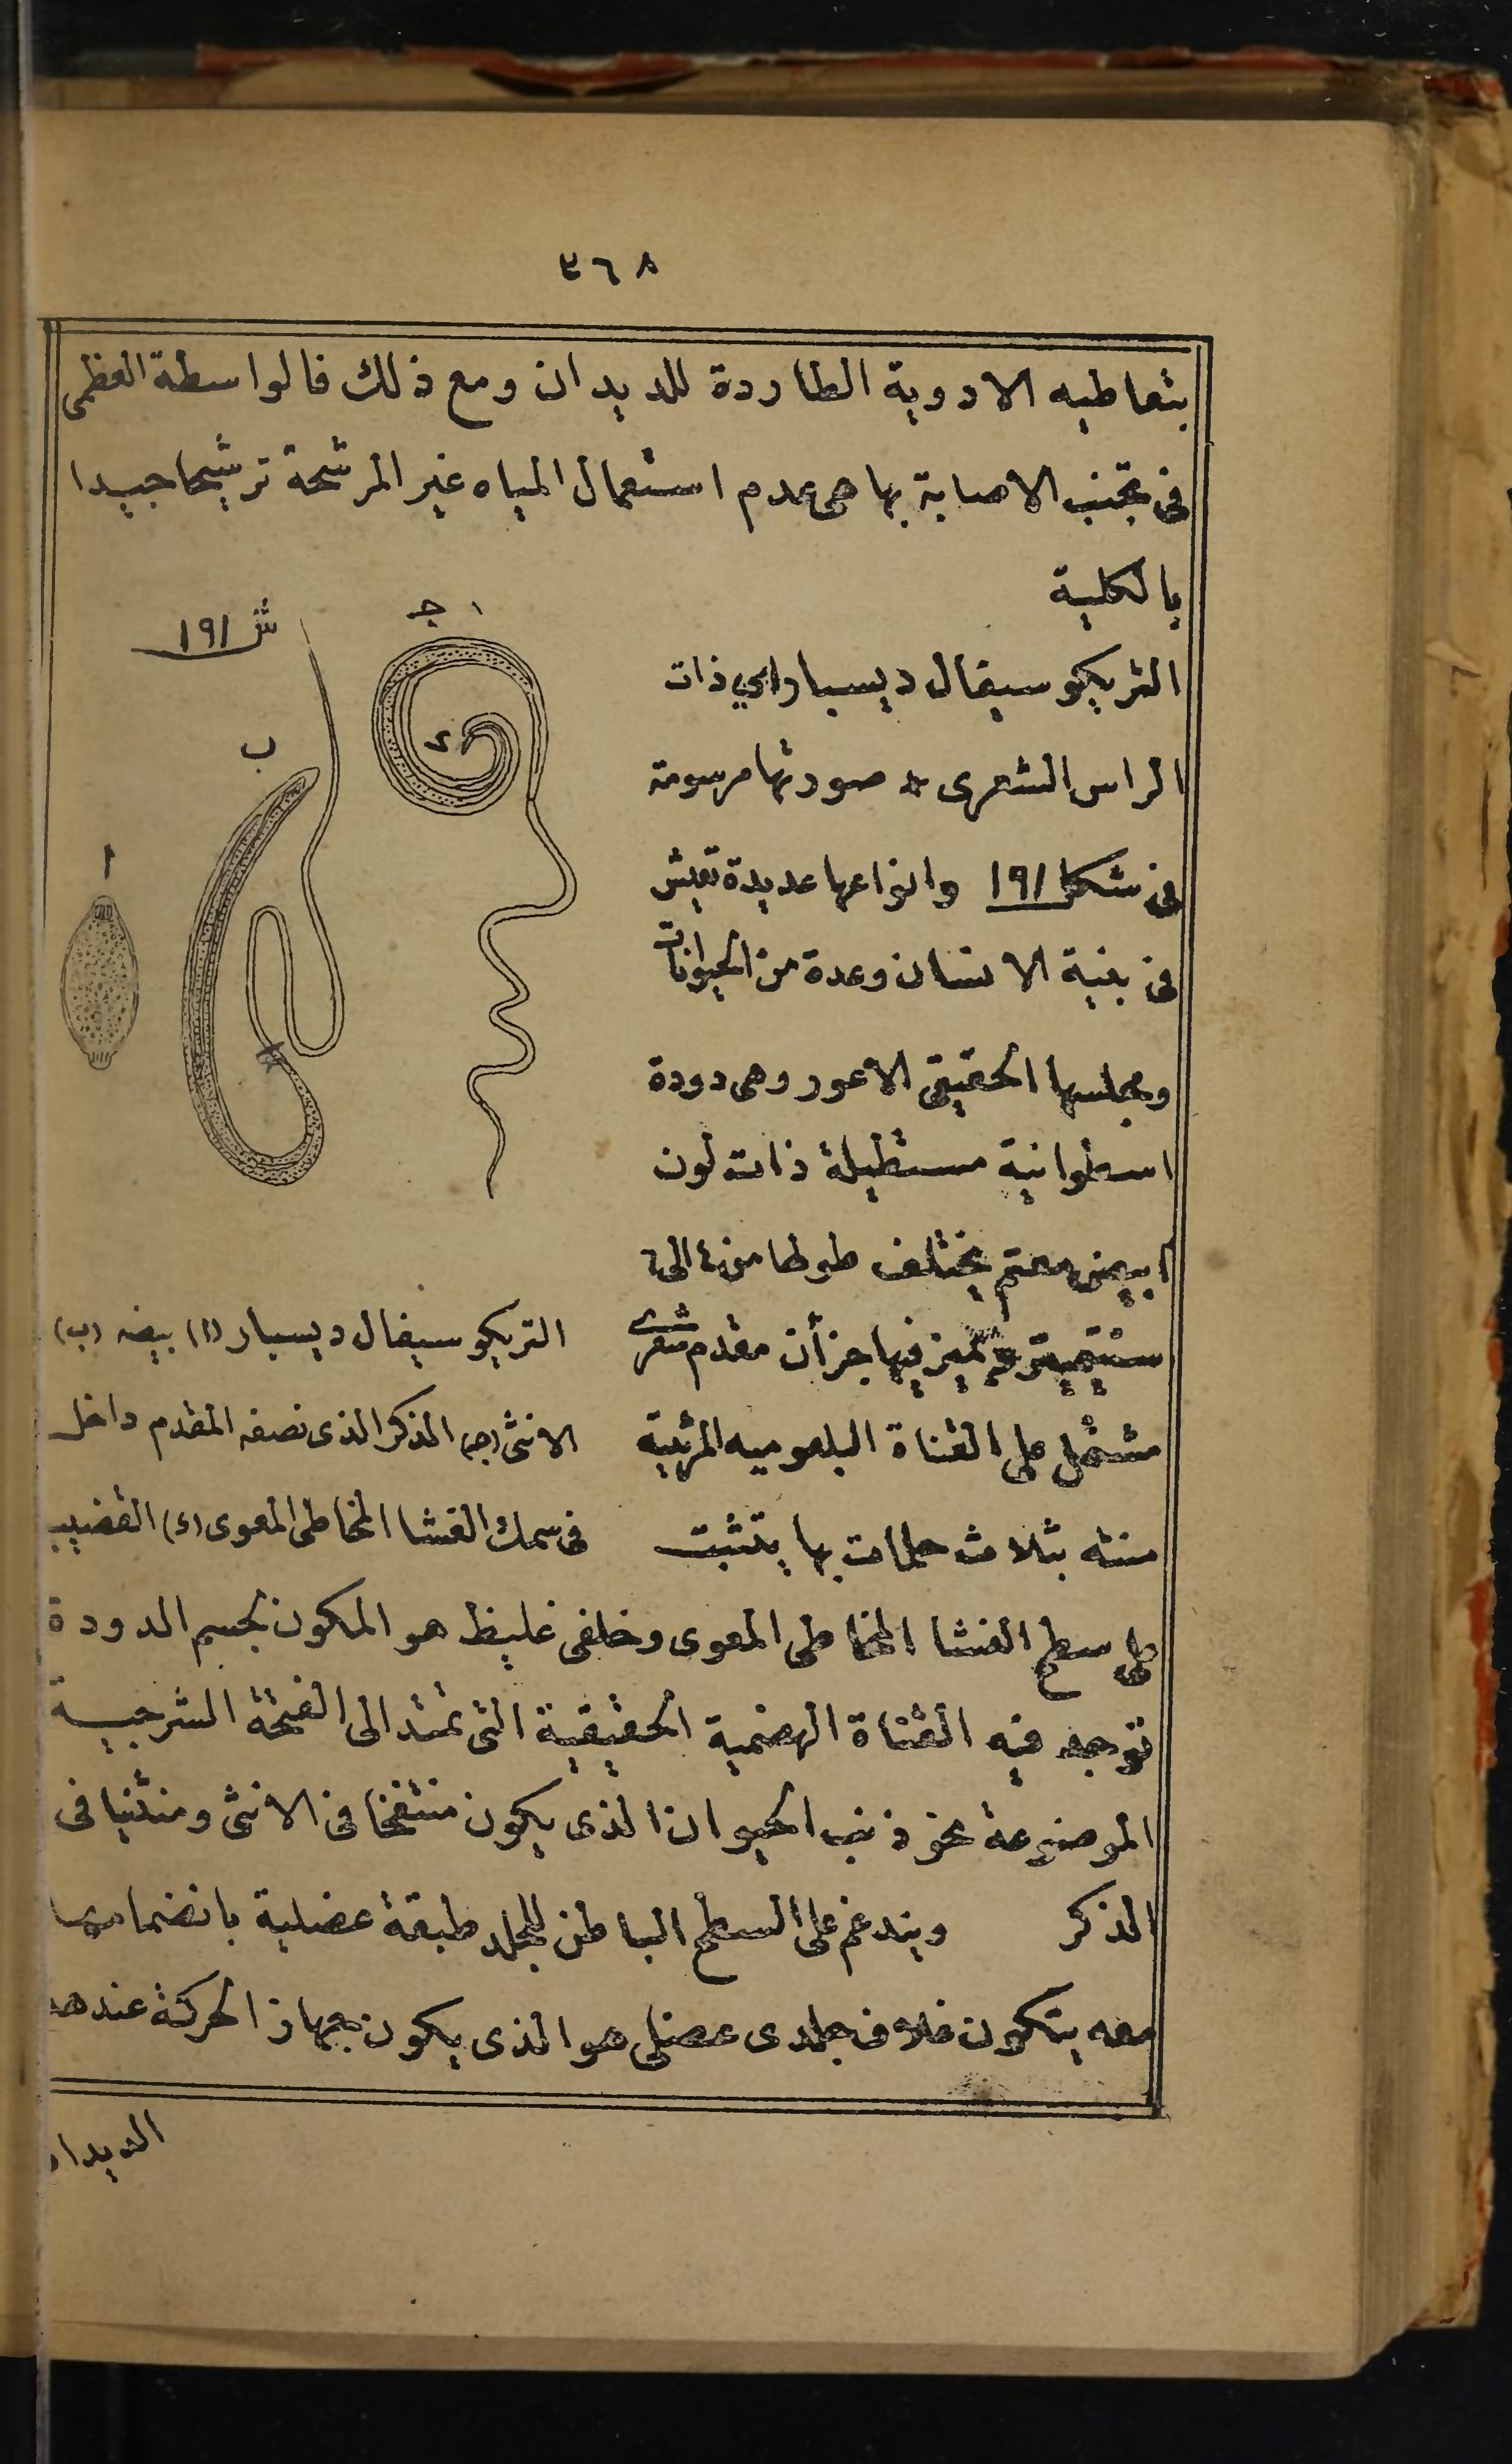 ٣٦٨
بتعاطيه الادوية الطاردة للديدان ومع ذلك فالواسطة العظمى
فى تجنب الاصابة بها هى عدم استعمال المياه غير المرشحة ترشيحا جيدا
بالكلية
ش ١٩١
جـ
ب
ا
ء
التريكوسيفال ديسبار اى ذات
الراس الشعرى * صورتها مرسومة
فى شكل ١٩١ وانواعها عديدة تعيش
فى بنية الانسان وعدة من الحيوانات
ومجلسها الحقيقى الاعور وهى دودة
اسطوانية مستطيلة ذات لون
ابيض معتم يختلف طولها من ٤ الى ٦
سنتيمتر ويتميز فيها جزأن مقدم شعرى
مشتمل على القناة البلعوميه المرئية
منته بثلاث حلمات بها يتثبت
التريكوسيفال ديسبار (ا) بيضه (ب)
الانثى (جـ) المذكر الذى نصفه المقدم داخل
فى سمك الغشا المخاطى المعوى (ء) القضيب
على سطح الغشا المخاطى المعوى وخلفى غليظ هو المكون لجسم الدودة
توجد فيه القناة الهضمية الحقيقية التى تمتد الى الفتحة الشرجية
الموضوعة نحو ذنب الحيوان الذى يكون منتفخا فى الانثى ومنثنيا فى
المذكر ويندغم على السطح الباطن للجلد طبقة عضلية بانضمامها
معه يتكون غلاف جلدى عضلى هو الذى يكون جهاز الحركة عند هذه